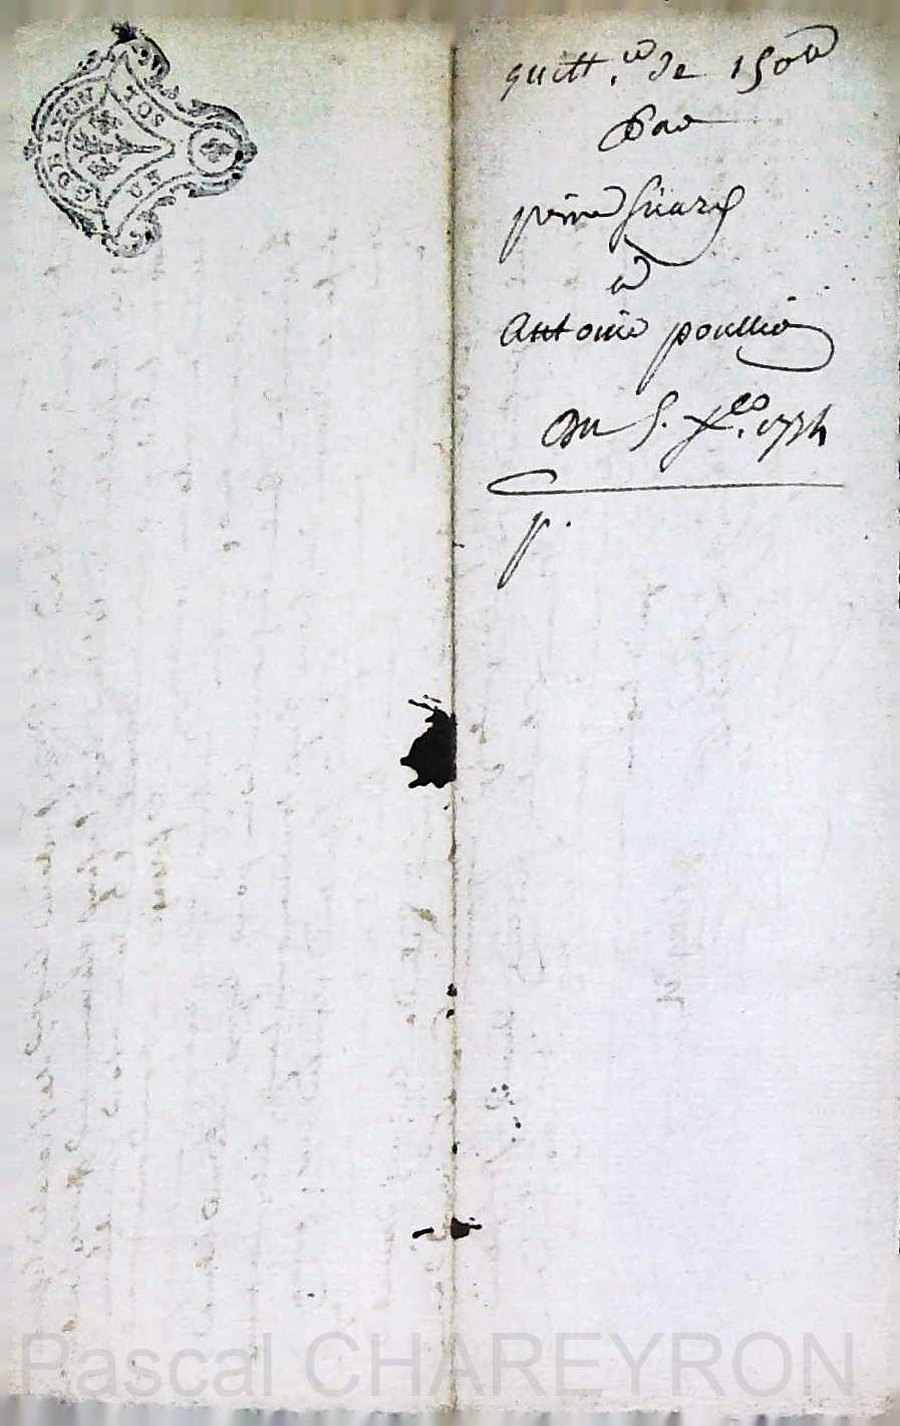 G DE LYON
UN
SOL
quitt.ce de 150tt
Par
pierre Sicard
a
Antoine poullio
Du 5. Xbre. 1774
p.
Pascal CHAREYRON